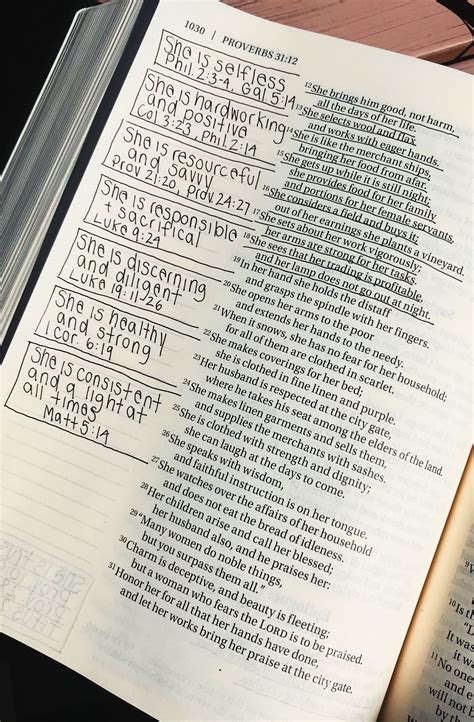 1030 | PROVERBS 31:12
She is selfless
Phil. 2:3-4, Gal 5:14
She is hardworking
and positive
Col 3:23, Phil. 2:14
She is resourceful
and savvy
Prov 21:20, Prov 24:27
She is responsible
+ sacrifical
Luke 9:24
She is discerning
and diligent
Luke 19:11-26
She is healthy
and strong
1 Cor. 6:19
She is consistent
and a light at
all times
Matt 5:14
12 She brings him good, not harm,
all the days of her life.
13 She selects wool and flax
and works with eager hands.
14 She is like the merchant ships,
bringing her food from afar.
15 She gets up while it is still night;
she provides food for her family
and portions for her female servants.
16 She considers a field and buys it;
out of her earnings she plants a vineyard.
17 She sets about her work vigorously;
her arms are strong for her tasks.
18 She sees that her trading is profitable,
and her lamp does not go out at night.
19 In her hand she holds the distaff
and grasps the spindle with her fingers.
20 She opens her arms to the poor
and extends her hands to the needy.
21 When it snows, she has no fear for her household;
for all of them are clothed in scarlet.
22 She makes coverings for her bed;
she is clothed in fine linen and purple.
23 Her husband is respected at the city gate,
where he takes his seat among the elders of the land.
24 She makes linen garments and sells them,
and supplies the merchants with sashes.
25 She is clothed with strength and dignity;
she can laugh at the days to come.
26 She speaks with wisdom,
and faithful instruction is on her tongue.
27 She watches over the affairs of her household
and does not eat the bread of idleness.
28 Her children arise and call her blessed;
her husband also, and he praises her:
29 "Many women do noble things,
but you surpass them all."
30 Charm is deceptive, and beauty is fleeting;
but a woman who fears the LORD is to be praised.
31 Honor her for all that her hands have done,
and let her works bring her praise at the city gate.
10 Is th
It was
it w
11 No one
and e
will not
by t